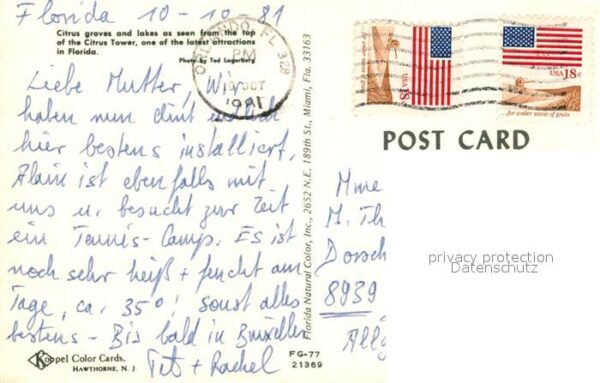 Florida 10-10-81
Citrus groves and lakes as seen from the top
of the Citrus Tower, one of the latest attractions
in Florida.
Photo by Ted Lagerberg
Liebe Mutter, Wir
haben nun
hier bestens installiert,
Alain ist ebenfalls mit
uns u. besucht zur Zeit
ein Tennis-Camp. Es ist
noch sehr heiß + feucht am
Tage, ca. 35°! sonst alles
bestens - Bis bald in Bruxelles
Tet + Rachel
Koppel Color Cards.
HAWTHORNE, N. J.
FG-77
21369
Florida Natural Color, Inc., 2652 N.E. 189th St., Miami, Fla. 33163
ORLANDO FL 328
PM
10 OCT
1981
USA 18c
USA 18c
for amber waves of grain
POST CARD
Mme
M. Th
Dorsch
8939
Allg
privacy protection
Datenschutz